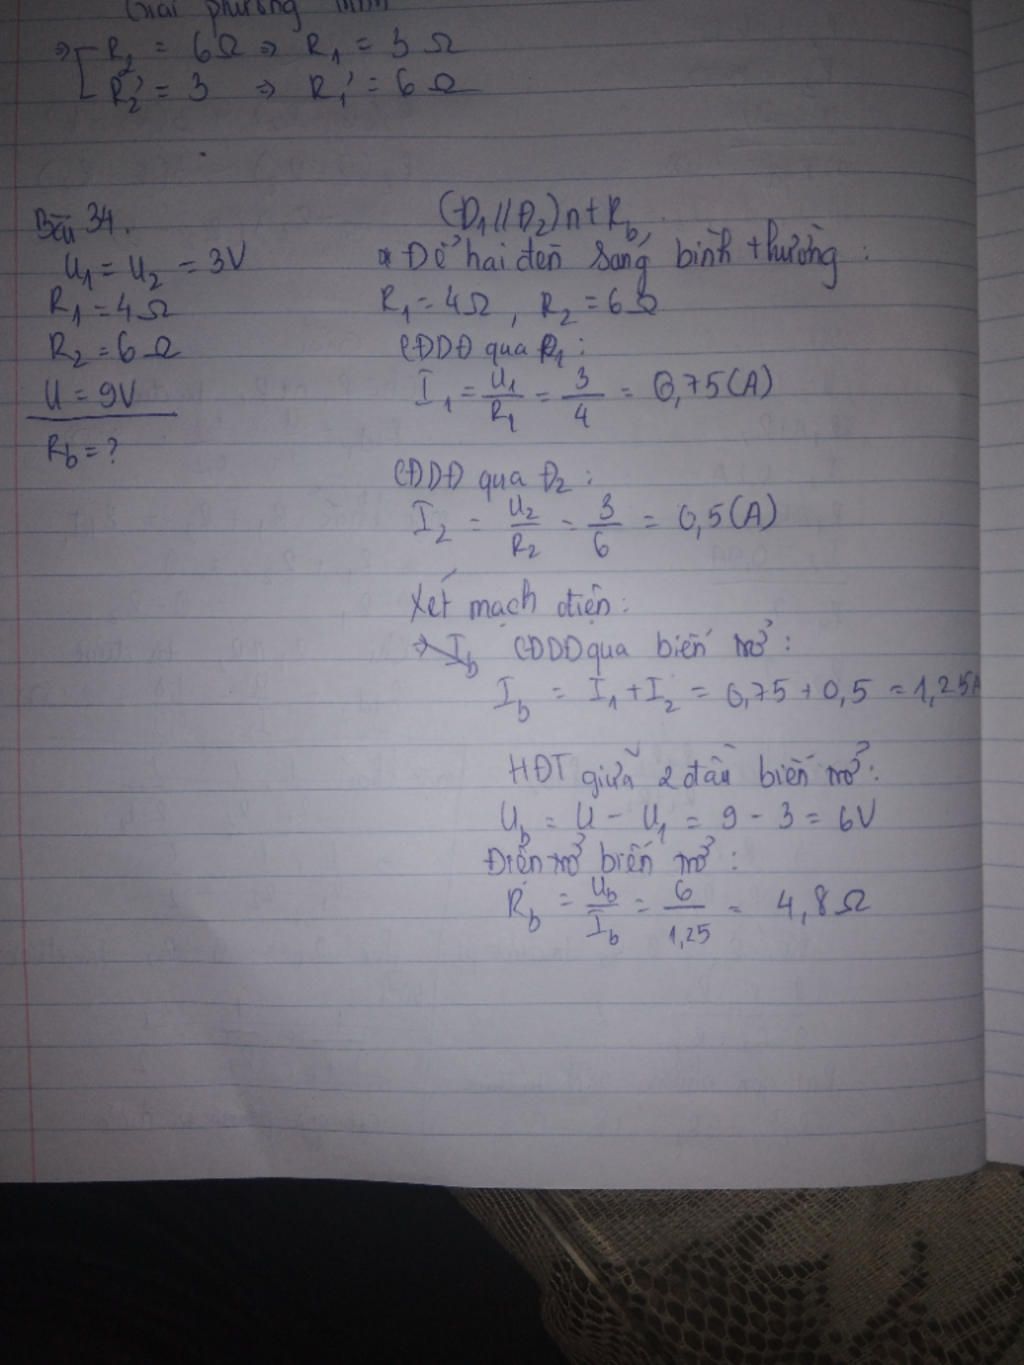 Giải phương trình
=> [ R₂ = 6Ω => R₁ = 3Ω
R₂' = 3 => R₁' = 6Ω
Bài 34.
U₁ = U₂ = 3V
R₁ = 4Ω
R₂ = 6Ω
U = 9V
R_b = ?
(Đ₁//Đ₂)nt R_b
* Để hai đèn sáng bình thường:
R₁ = 4Ω, R₂ = 6Ω
CĐDĐ qua R₁:
I₁ = U₁/R₁ = 3/4 = 0,75(A)
CĐDĐ qua Đ₂:
I₂ = U₂/R₂ = 3/6 = 0,5(A)
Xét mạch điện:
CĐDĐ qua biến trở:
I_b = I₁ + I₂ = 0,75 + 0,5 = 1,25A
HĐT giữa 2 đầu biến trở:
U_b = U - U₁ = 9 - 3 = 6V
Điện trở biến trở:
R_b = U_b/I_b = 6/1,25 = 4,8Ω